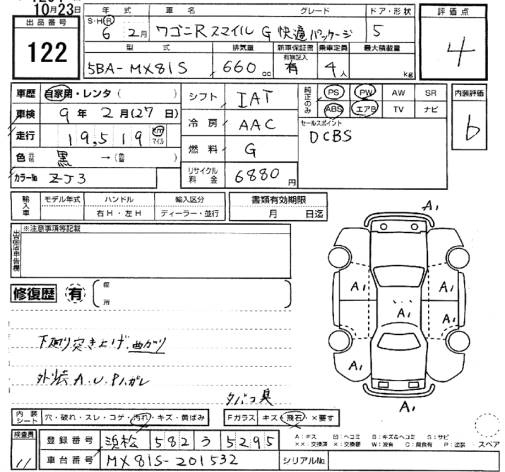 10月23日
出品番号
122
年式 車名 グレード ドア・形状
S・H・R 6年 2月 ワゴニRスマイル G 快適パッケージ 5
型式 排気量 新車保証書 乗車定員 最大積載量
5BA-MX81S 660cc 有 4人 kg
評価点
4
車歴 自家用・レンタ( )
車検 9年 2月(27日)
走行 19,519 km マイル
色 黒→( )
カラーNo ZJ3
シフト IAT
冷房 AAC
燃料 G
リサイクル料金 6880円
純正のみ PS PW AW SR
ABS エアB TV ナビ
セールスポイント
DCBS
内装評価
b
輸入車 モデル年式 ハンドル 輸入区分
右H・左H ディーラー・並行
書類有効期限
月 日迄
※注意事項等記載
修復歴 有
症
所
A1
A1 A1 A1
A1
下廻り突き上げ、曲がり
外装A.U.P1.ガレ
タバコ臭
内装シート 穴・破れ・スレ・コゲ・汚れ・キズ・黄ばみ
Fガラス キズ・飛石・×要す
検査員
11
登録番号 浜松 582 う 5295
車台番号 MX81S-201532
シリアルNo.
スペア